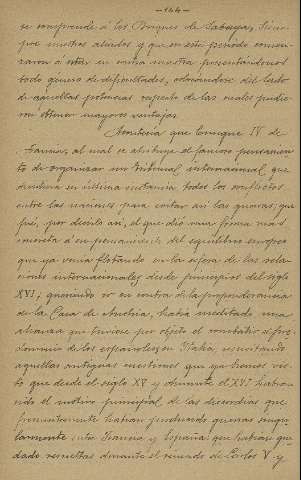 -164-
se comprende á los Duques de Saboya, siem-
pre nuestros aliados y que en este periodo comen-
zaron á estar en contra nuestra presentándonos
todo género de dificultades, colocándose del lado
de aquellas potencias respecto de las cuales pudie-
ron obtener mayores ventajas.
que Enrique IV de
Francia, al cual se atribuye el famoso pensamien-
to de organizar un tribunal internacional que
en última instancia todos los conflictos
entre las naciones para evitar así las guerras, que
fué, por decirlo así, el que dió una forma más
concreta á su pensamiento del equilibrio europeo
que ya venía flotando en la esfera de las rela-
ciones internacionales desde principios del siglo
XVI; queriendo ir en contra de la preponderancia
de la Casa de Austria, había meditado una
alianza que tuviese por objeto el combatir el pre-
dominio de los españoles en Italia, resucitando
aquellas antiguas cuestiones que ya hemos vis-
to que desde el siglo XV y durante el XVI habían
sido el motivo principal de las discordias que
frecuentemente habían producido guerras singu-
larmente entre Francia y España; que habían que-
dado resueltas durante el reinado de Carlos V y